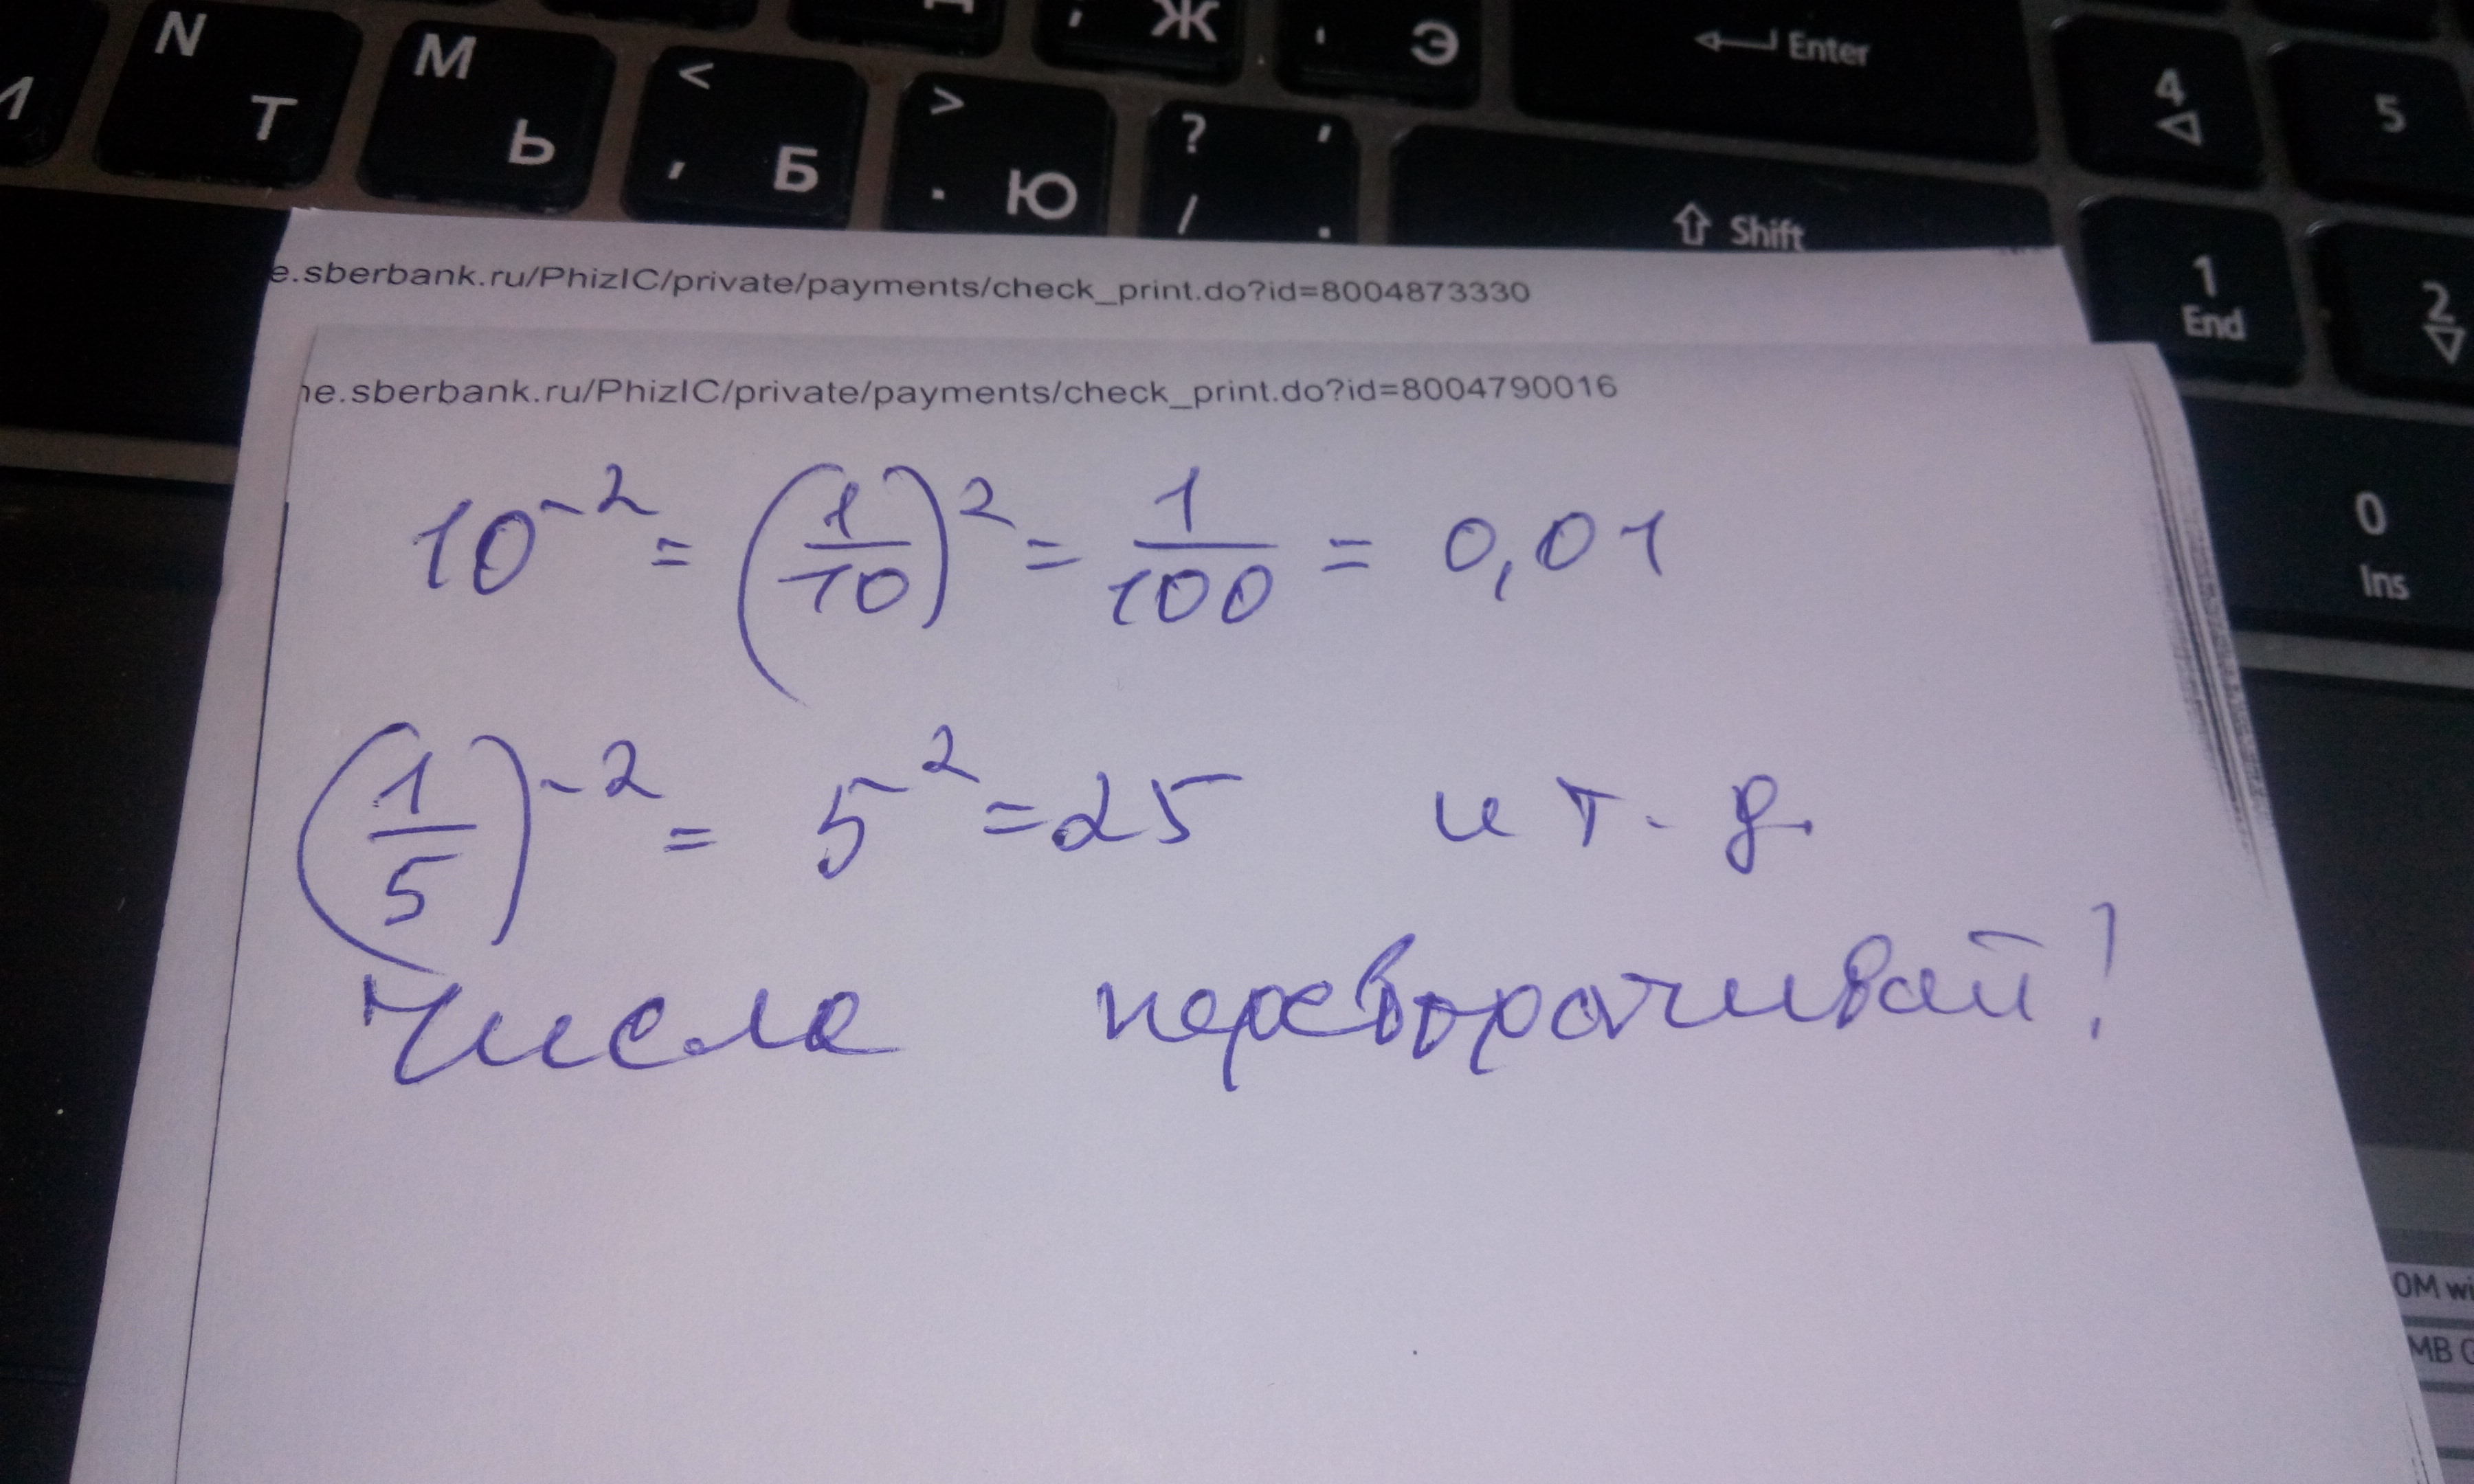 N Т М Ь < , Б > . Ю ? / , . ; Ж ' Э Enter 4 5
Shift 1 End 2
0 Ins
e.sberbank.ru/PhizIC/private/payments/check_print.do?id=8004873330
ne.sberbank.ru/PhizIC/private/payments/check_print.do?id=8004790016
10^-2 = (1/10)^2 = 1/100 = 0,01
(1/5)^-2 = 5^2 = 25 и т. д.
Числа переворачивай!
OM wi
MB